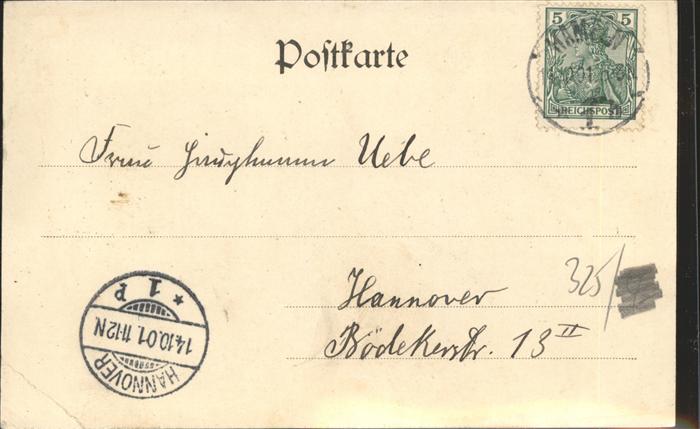 Postkarte
5 5
REICHSPOST
Frau Hauptmann Uebe
Hannover
Bödekerstr. 13 II
325/
HANNOVER
14.10.01. 11-12N
* 1 P